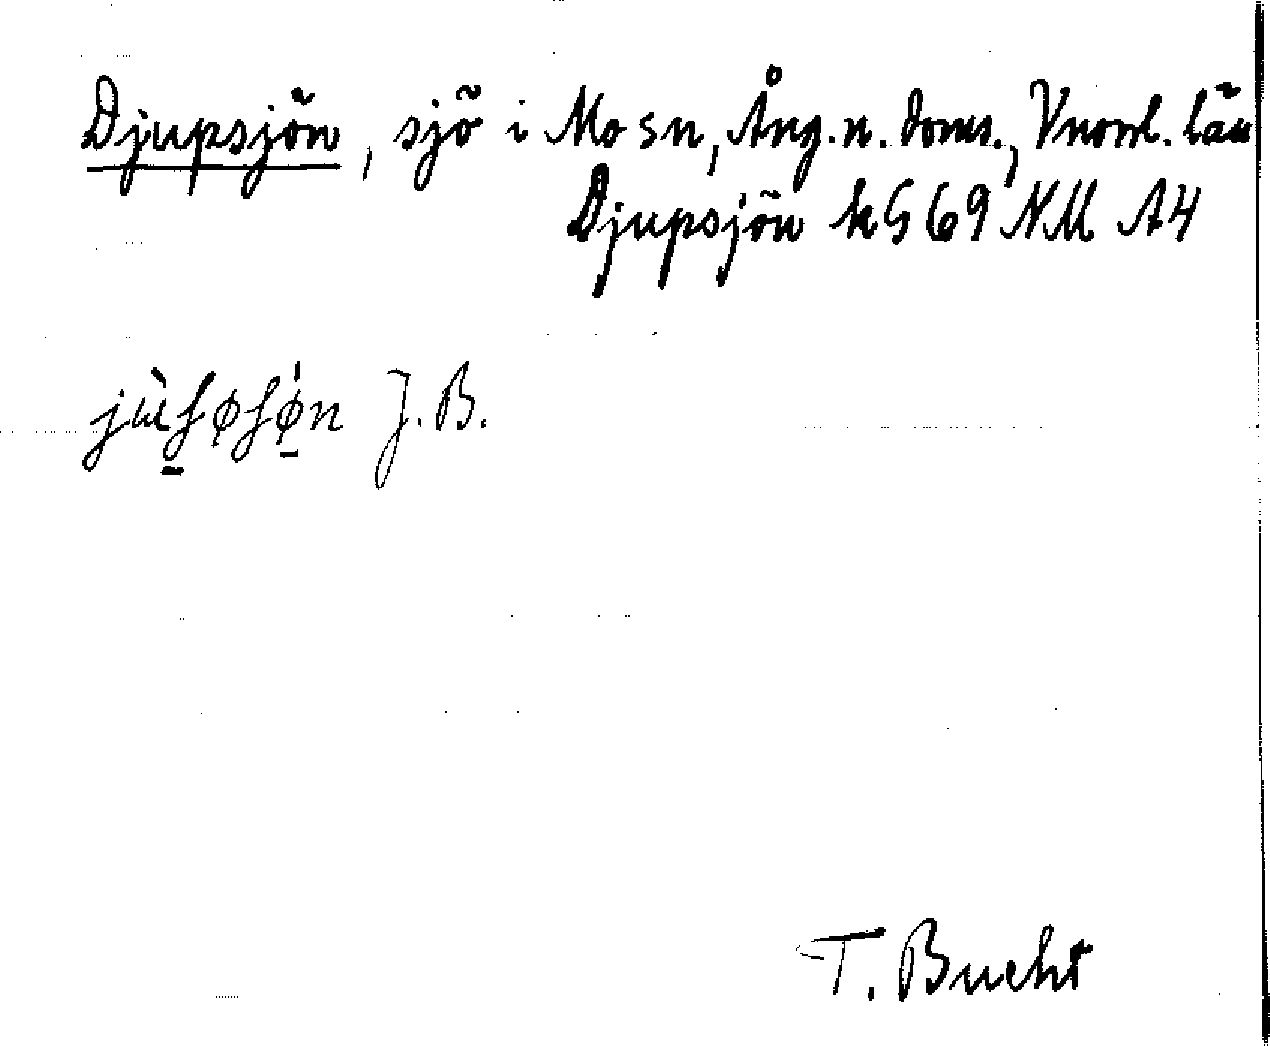 Djupsjön, sjö i Mo sn, Ång. n. doms., Vnorrl. län
Djupsjön kG 69 NM A4
J. B.
T. Bucht